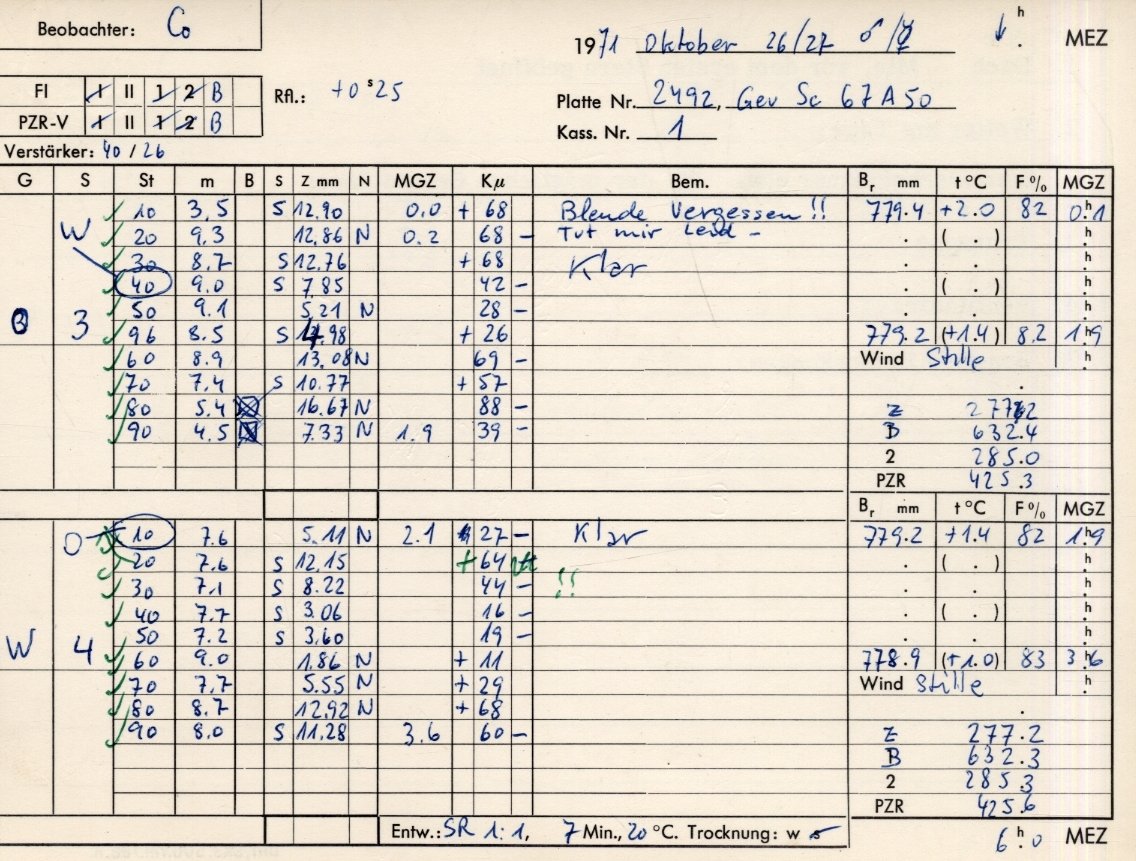 Beobachter: Co
1971 Oktober 26/27 ♂/☿ ↓ h . MEZ
FI I II 1 2 B Rfl.: +0 s 25
PZR-V I II 1 2 B
Platte Nr. 2492, Gev Sc 67A50
Kass. Nr. 1
Verstärker: 40/26
G S St m B S Z mm N MGZ Kμ Bem. Br mm t °C F % MGZ
10 3,5 S 12.90 0.0 + 68 Blende vergessen!! 779.4 +2.0 82 0h.1
W 20 9.3 12,86 N 0.2 68 – Tut mir Leid – . ( . ) h
30 8.7 S 12.76 + 68 Klar . . h
40 9.0 S 7.85 42 – . ( . ) h
50 9.1 5,21 N 28 – . . h
3 96 8.5 S 4.98 + 26 779.2 (+1.4) 82 1h.9
60 8.9 13,08 N 69 – Wind Stille h
70 7.4 S 10.77 + 57 .
80 5.4 16.67 N 88 – Z 277.2
90 4.5 7.33 N 1.9 39 – B 632.4
2 285.0
PZR 425.3
Br mm t °C F % MGZ
O 10 7.6 5.11 N 2.1 27 – Klar 779.2 +1.4 82 1h.9
20 7.6 S 12,15 + 64 . ( . ) h
30 7.1 S 8.22 44 – !! . . h
40 7.7 S 3.06 16 – . ( . ) h
50 7.2 S 3.60 19 – . . h
W 4 60 9.0 1.86 N + 11 778.9 (+1.0) 83 3h.6
70 7.7 5.55 N + 29 Wind Stille h
80 8.7 12,92 N + 68 .
90 8.0 S 11.28 3.6 60 – Z 277.2
B 632.3
2 285.3
PZR 425.6
Entw.: SR 1:1, 7 Min., 20 °C. Trocknung: w 6h.0 MEZ